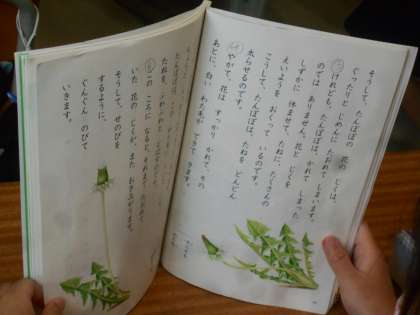 そうして、たんぽぽの 花の じくは、
ぐったりと じめんに たおれて しまいます。
けれども、たんぽぽは、かれて しまった
のでは ありません。花と じくを
しずかに 休ませて、たねに、たくさんの
えいようを おくって いるのです。
こうして、たんぽぽは、たねを どんどん
太らせるのです。
やがて、花は すっかり かれて、その
あとに、白い わた毛が できて きます。
たねを、
この ころに なると、それまで たおれて
いた 花の じくが、また おき上がります。
そうして、せのびを
するように、
ぐんぐん のびて
いきます。